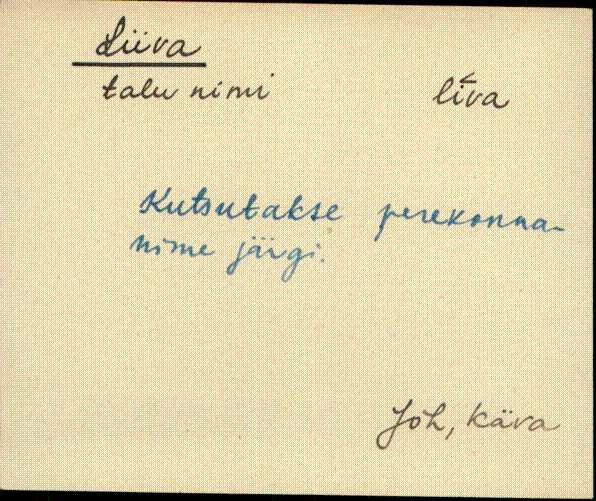 Liiva
talu nimi
līva
Kutsutakse perekonna-
nime järgi.
Jõh, Käva